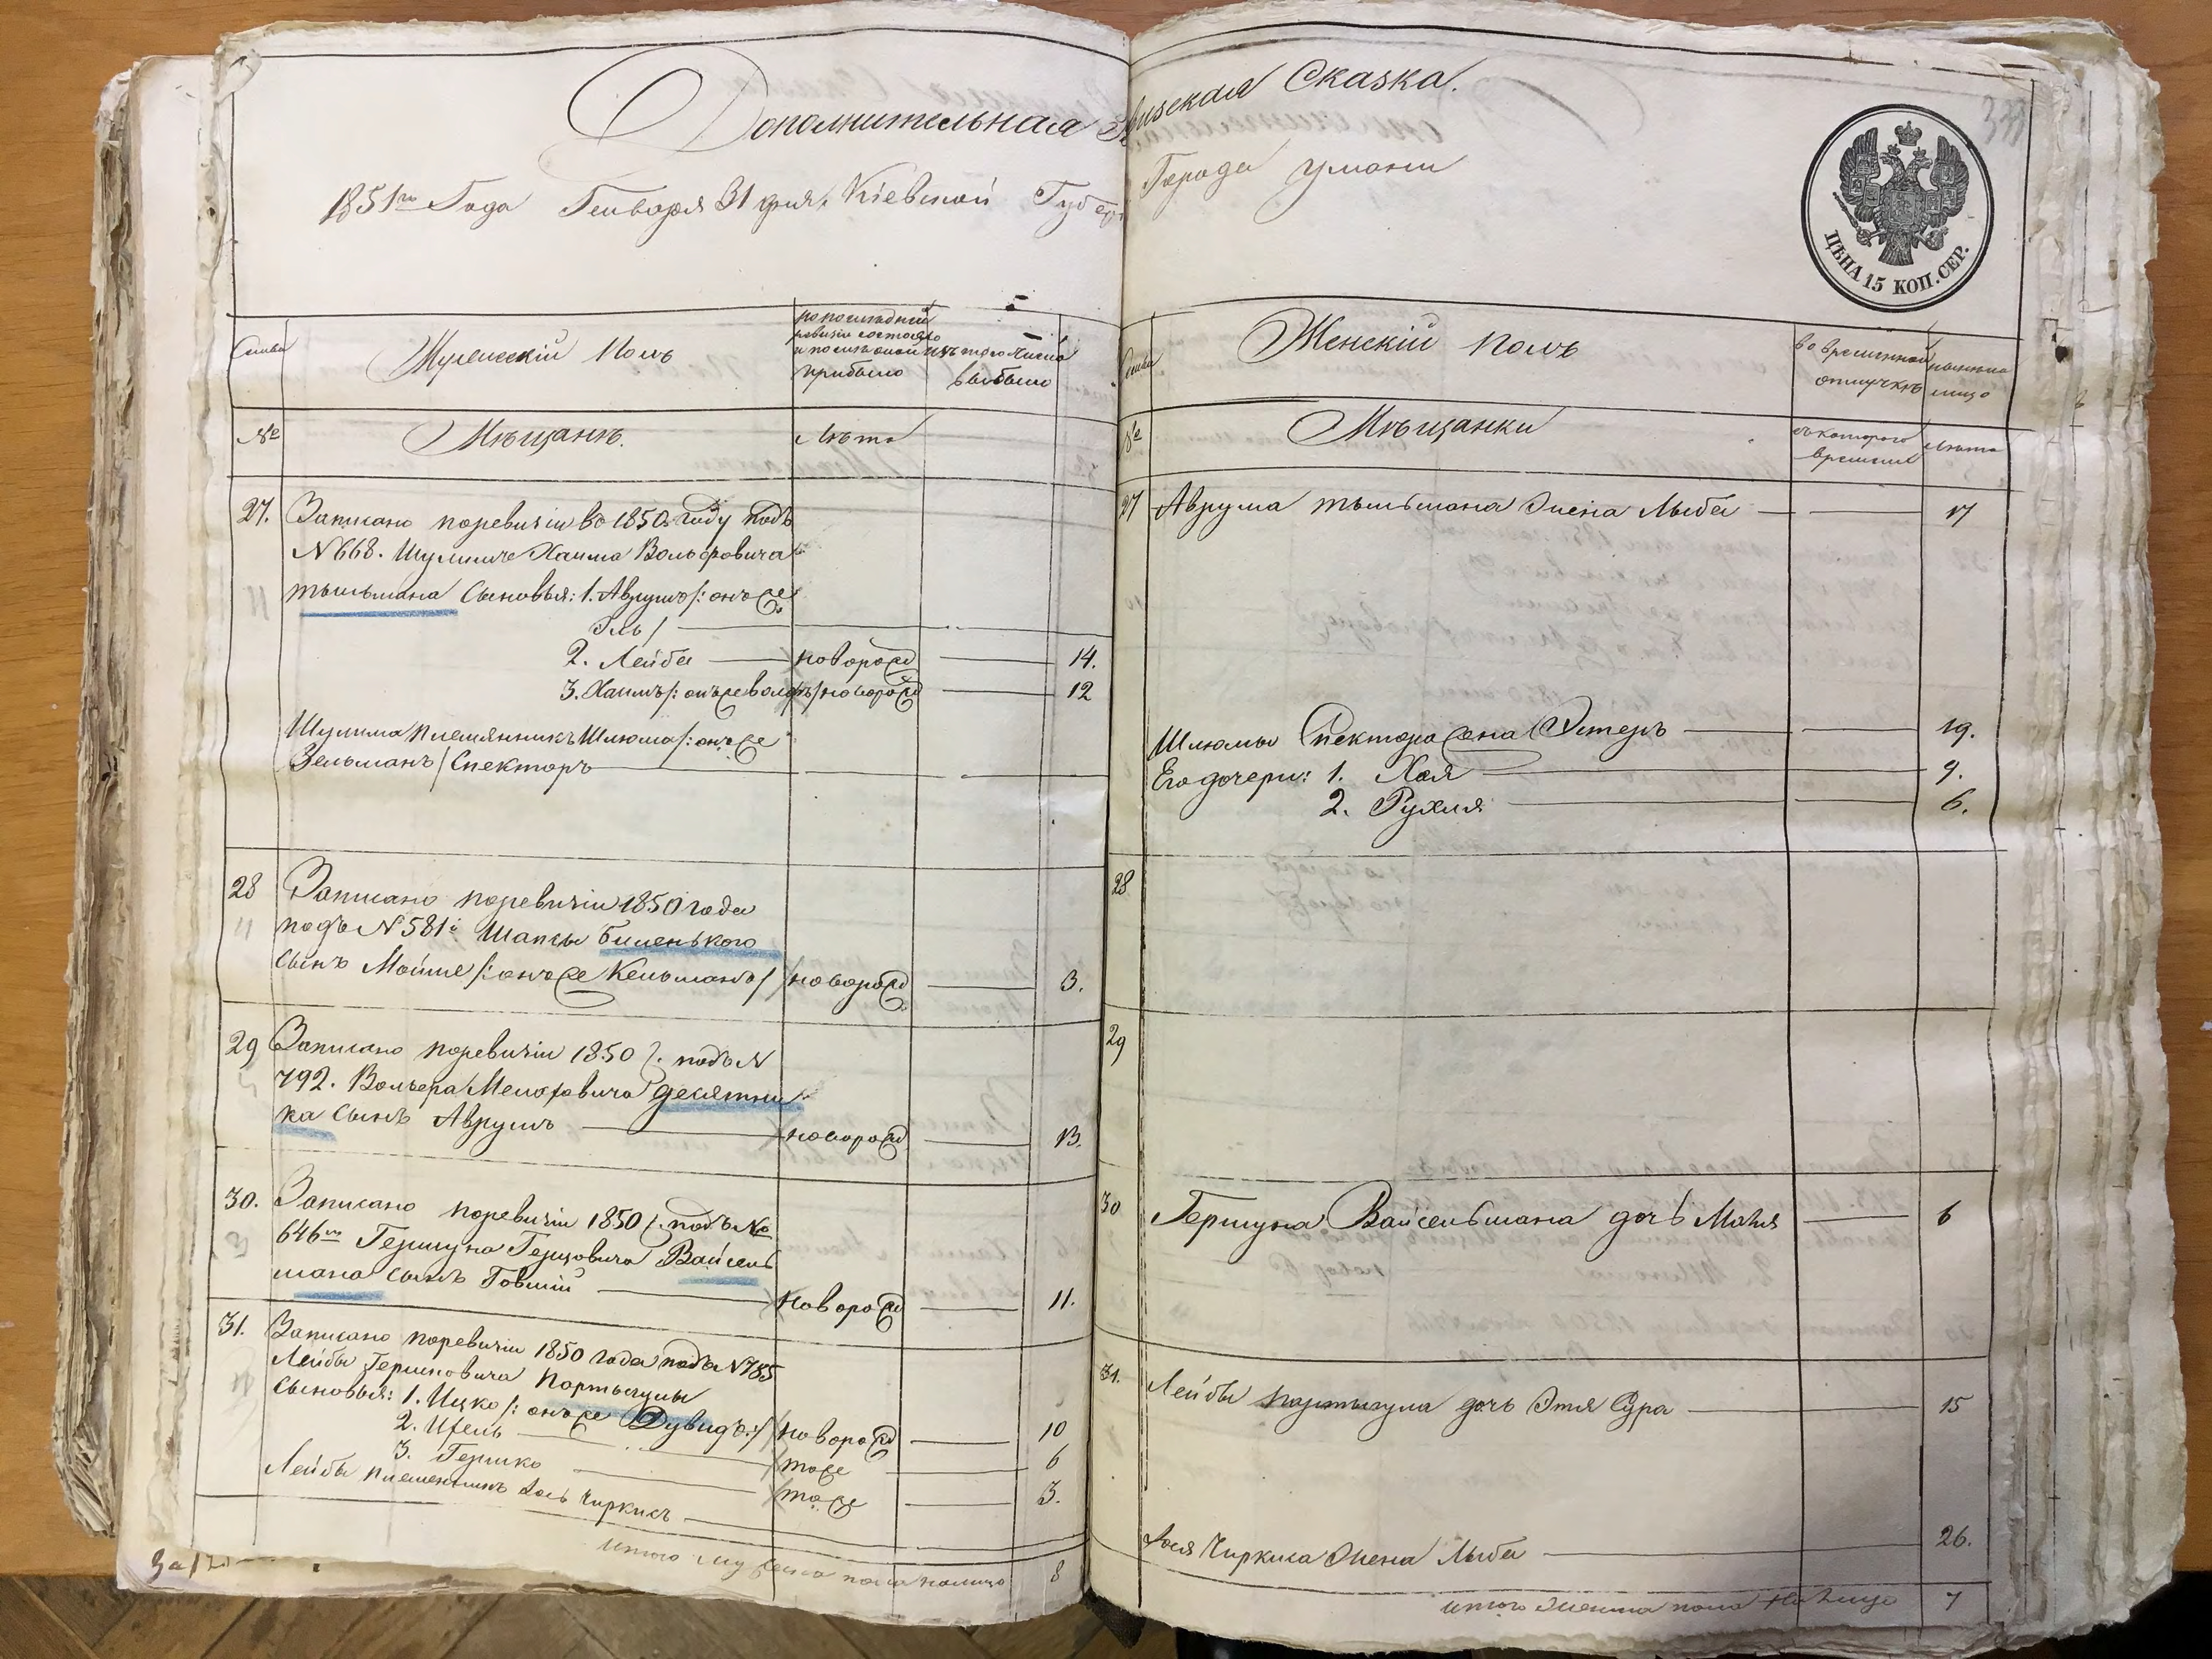 Дополнительная Ревизская Сказка.
1851го Года Генваря 31 дня, Кіевской Губер. Города Умани
ЦѢНА 15 КОП. СЕР.
Семьи
Мужескій полъ
по последней
ревизіи состояло
и после оной
прибыло
изъ того числа
выбыло
№
Мѣщанѣ.
Лѣта
27. Записано поревизіи во 1850. году подъ
N 668. Шулима Хаима Вольфовича
тыльмана Сыновья: 1. Аврумъ /: онъ же
Гль /
2. Лейба новорожд 14.
3. Хаимъ /: онъ же волфъ / новорожд 12
Шулима племянникъ Шлюма /: онъ же
Зельманъ / Спекторъ
28 Записано поревизіи 1850 года
подъ N 581: Шапсы биленького
сынъ Мойше /: онъ же Кельманъ / новорожд 3.
29 Записано поревизіи 1850 г. подъ N
792. Вольера Меюровича десятни
ка сынъ Аврумъ новорожд 13.
30. Записано поревизіи 1850 г. подъ №
646го Гершуна Герцовича Вайсель
мана сынъ Говшій новорожд 11.
31. Записано поревизіи 1850 года подъ N 785
Лейбы Гершковича Портыгулы
Сыновья: 1. Ицко /: онъ же Дувидъ :/ новорожд 10
2. Ицель тоже 6
3. Гершко тоже 3.
Лейбы племенникъ Іось Чиркисъ
итого мужеска пола налицо 8
Семьи
Женскій полъ
во временной
отлучкѣ
нынѣ на
лицо
№
Мѣщанки
съ котораго
времени
Лѣта
27 Аврума тыльмана жена Лыба 17
Шлюмы Спектора жена Эстеръ 19.
Его дочери: 1. Хая 9.
2. Рухля 6.
28
29
30 Гершуна Вайсельмана дочь Маля 6
31. Лейбы портыгула дочь Этя Сура 15
Іося Чиркиса жена Лыба 26.
итого женска пола на лицо 7